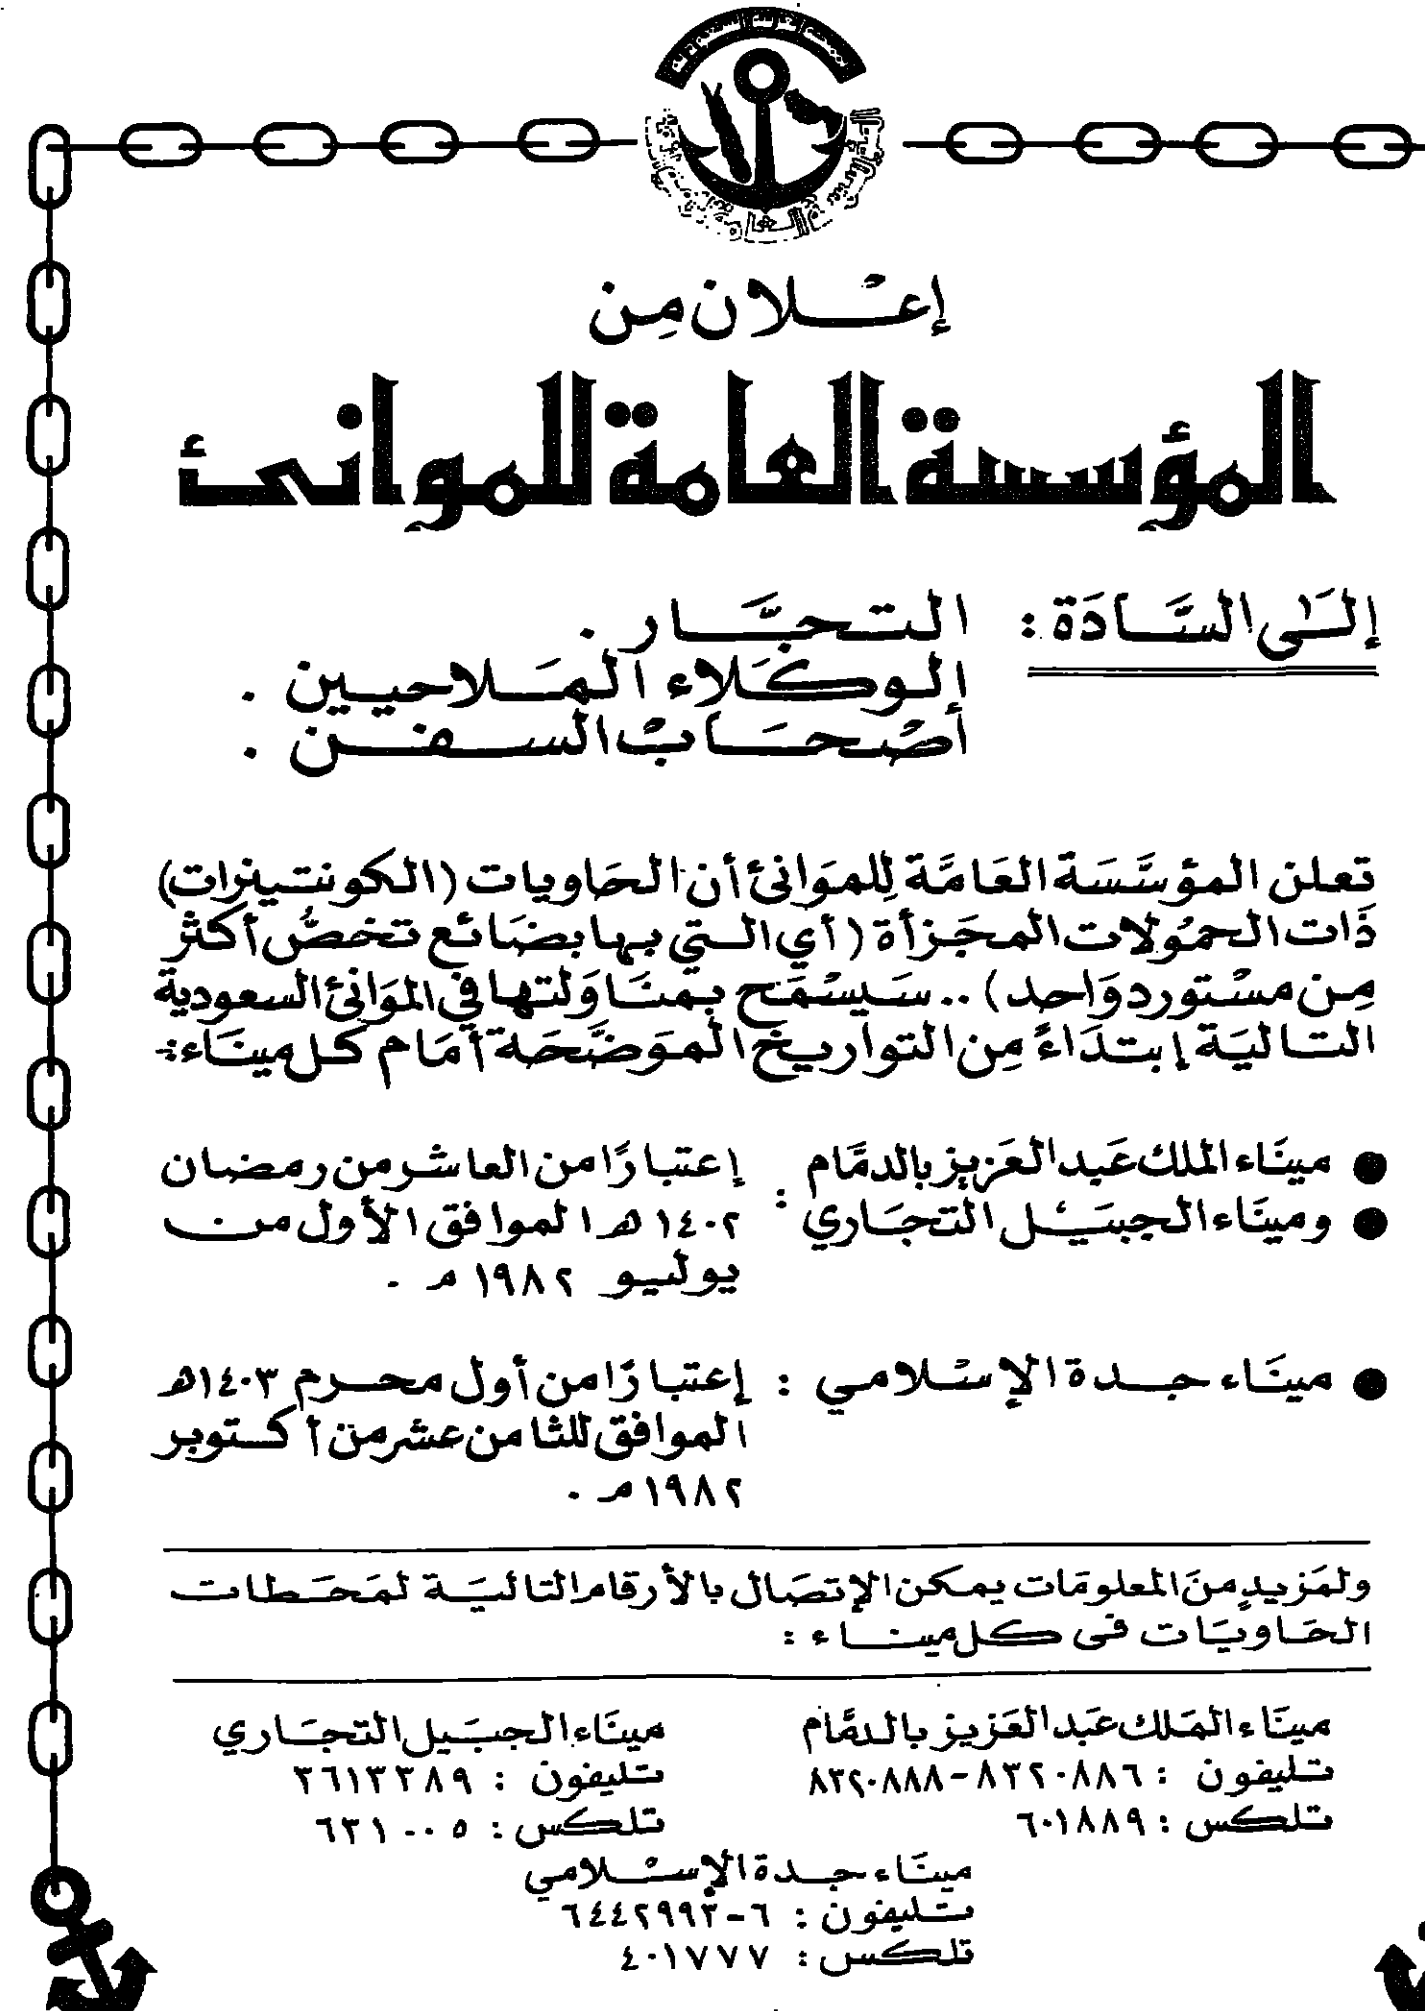 إعلان من
المؤسسة العامة للموانئ
إلى السادة : التجار .
الوكلاء الملاحيين .
أصحاب السفن .
تعلن المؤسسة العامة للموانئ أن الحاويات (الكونتينرات)
ذات الحمولات المجزأة (أي التي بها بضائع تخص أكثر
من مستورد واحد) .. سيسمح بمناولتها في الموانئ السعودية
التالية إبتداءً من التواريخ الموضحة أمام كل ميناء :-
● ميناء الملك عبد العزيز بالدمام
● وميناء الجبيل التجاري :
إعتبارًا من العاشر من رمضان
١٤٠٢ هـ الموافق الأول من
يوليو ١٩٨٢ م .
● ميناء جدة الإسلامي : إعتبارًا من أول محرم ١٤٠٣هـ
الموافق للثامن عشر من أكتوبر
١٩٨٢ م .
ولمزيد من المعلومات يمكن الإتصال بالأرقام التالية لمحطات
الحاويات فى كل ميناء :
ميناء الملك عبد العزيز بالدمام
تليفون : ٨٣٢٠٨٨٦-٨٣٢٠٨٨٨
تلكس : ٦٠١٨٨٩
ميناء الجبيل التجاري
تليفون : ٣٦١٣٣٨٩
تلكس : ٦٣١٠٠٥
ميناء جدة الإسلامي
تليفون : ٦-
تلكس : ٤٠١٧٧٧